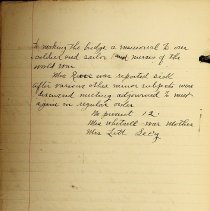 in making the bridge a memorial to our
soldier and sailor and nurses of the
world war
Mrs was reported sick
after various other minor subjects were
discussed meeting adjourned to meet
again in regular order
No present 12.
Mrs was Mother
Mrs Secy